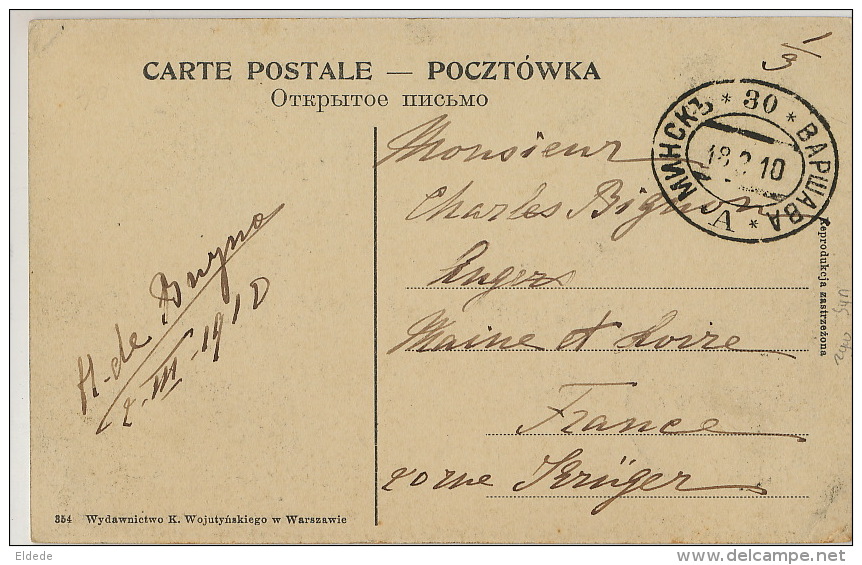 1/3
CARTE POSTALE — POCZTÓWKA
Открытое письмо
МИНСКЪ * 30 * ВАРШАВА * А
18 2 10
Monsieur
Charles Bignon
Angers
Maine et Loire
France
rorne Krüger
H. de Buyno
2. III - 1910
Reprodukcja zastrzeżona
354 Wydawnictwo K. Wojutyńskiego w Warszawie
Eldede
www.delcampe.net